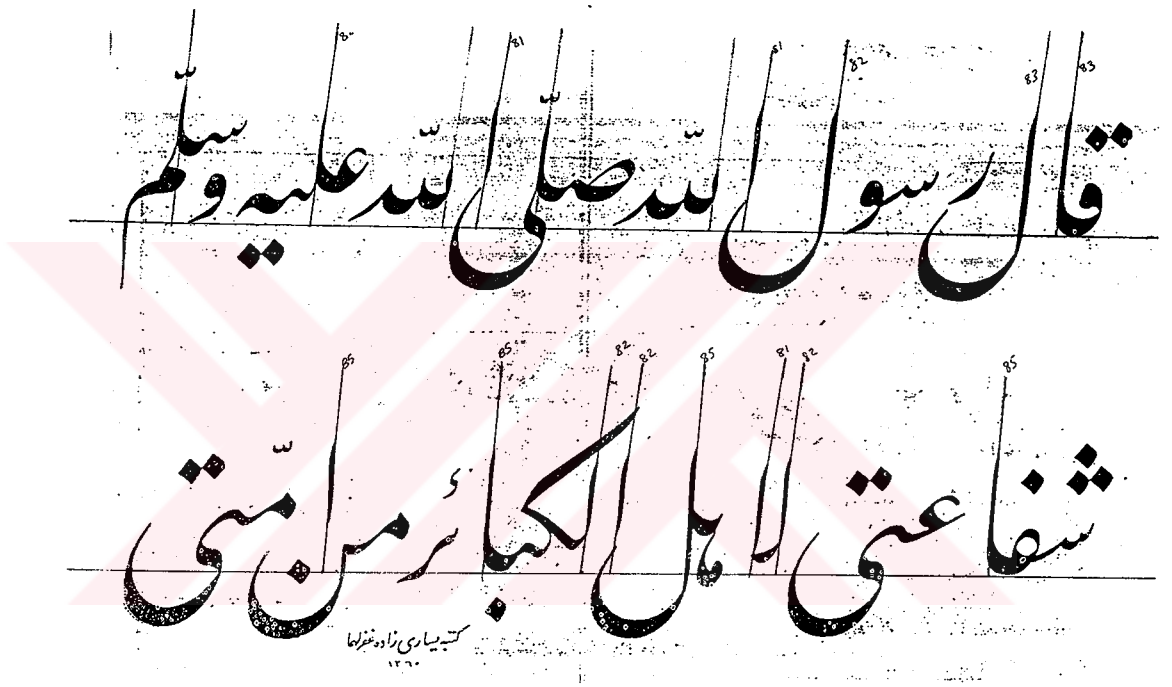 83 83 82 81 81 80
قال رسول الله صلّى الله عليه وسلّم
85 82 81 85 82 82 85 85
شفاعتى لاهل الكبائر من امّتى
كتبه يسارى زاده غفر لهما
١٢٦٠